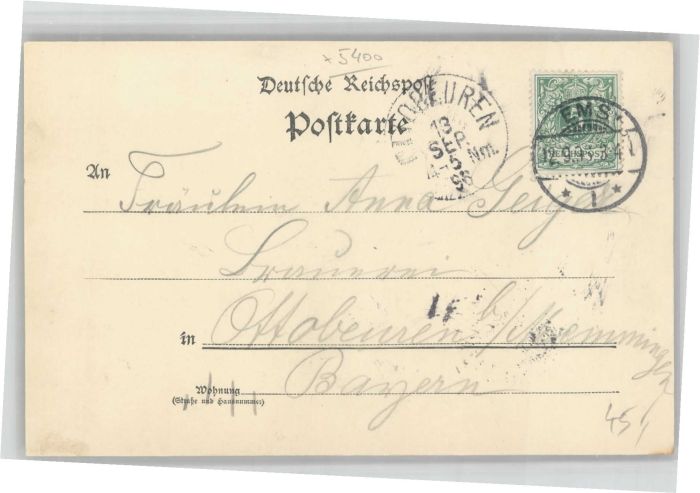 + 5400
Deutsche Reichspost
Postkarte
OTTOBEUREN
13
SEP
Nm.
98
EMS
12.9.
REICHSPOST
* 1 *
An
Fräulein Anna Geiger
Brauerei
in Ottobeuren b/Memmingen
Bayern
Wohnung
(Straße und Hausnummer)
45,